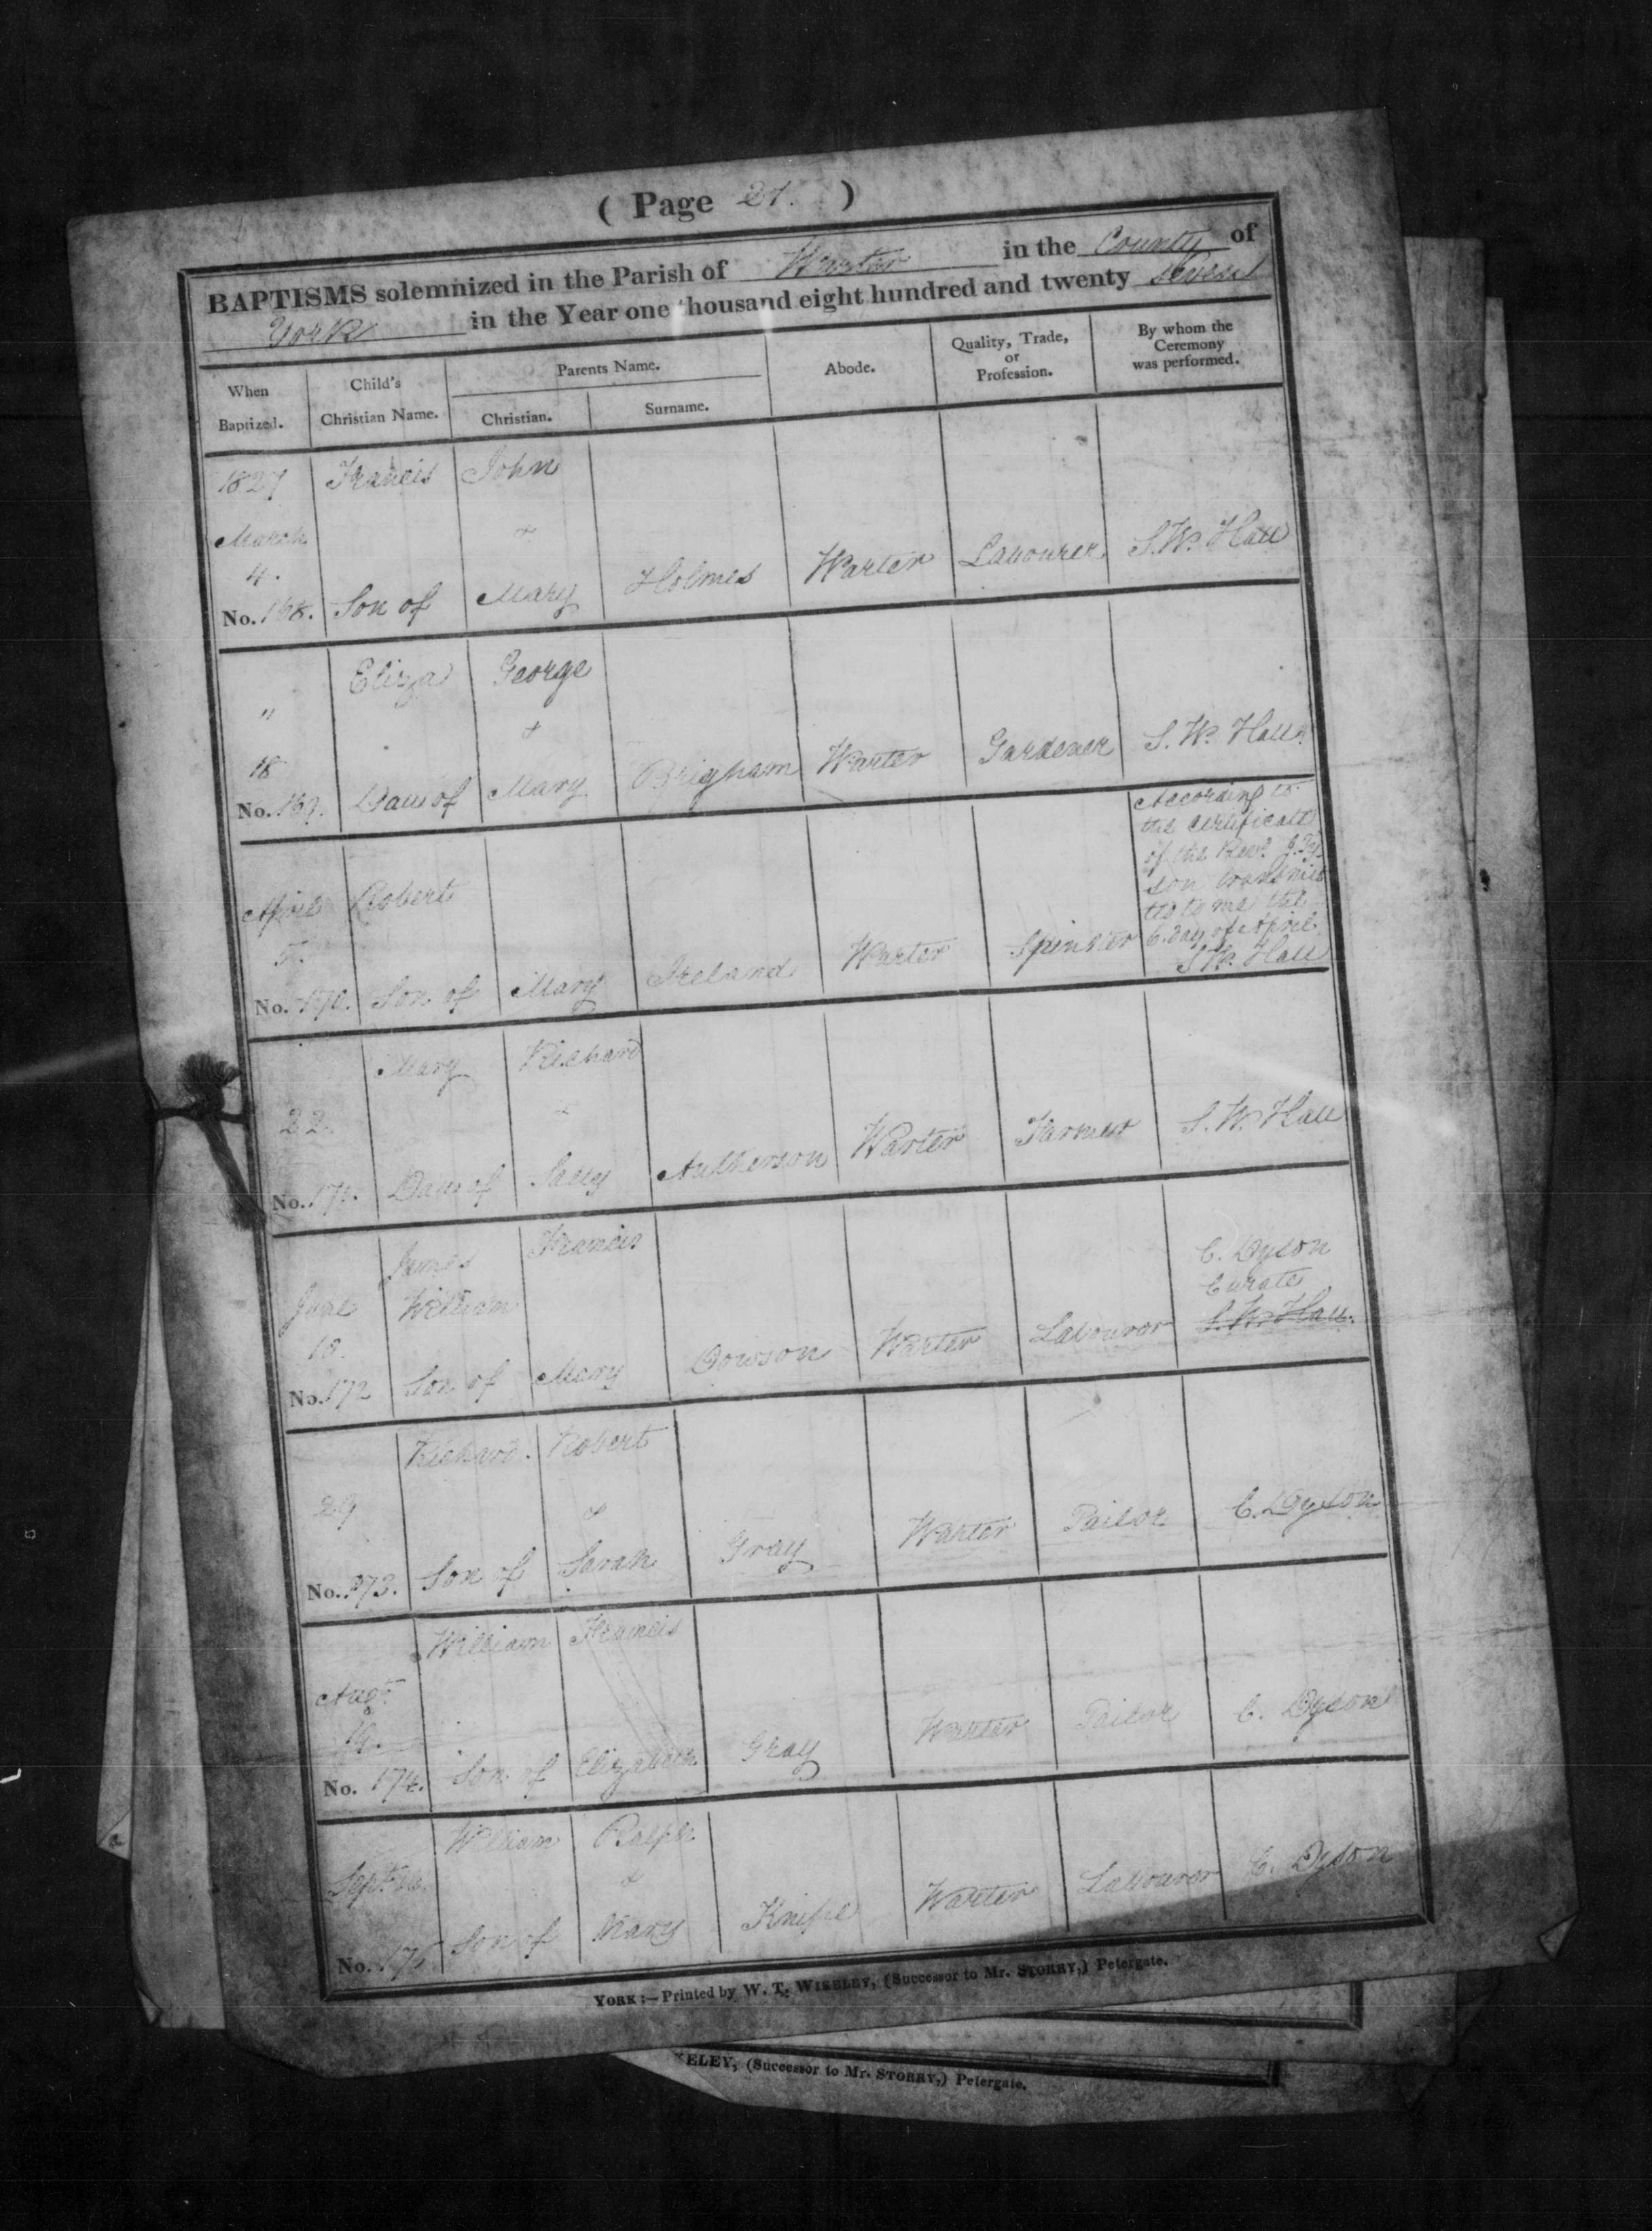 ( Page 21. )
BAPTISMS solemnized in the Parish of Warter in the County of
York in the Year one thousand eight hundred and twenty seven
When Baptized.
Child's Christian Name.
Parents Name.
Christian.
Surname.
Abode.
Quality, Trade, or Profession.
By whom the Ceremony was performed.
1827 Francis John
March +
4. Holmes Warter Labourer S. W. Hall
No. 168. Son of Mary
Eliza George
" +
18 Brigham Warter Gardener S. W. Hall
No. 169. Dau of Mary
According to
the certificate
of the Revd. J. Ty-
son transmit
ted to me the
6. day of April
S W. Hall
April Robert
5. Warter Spinster
No. 170. Son of Mary Ireland
Mary Richard
22. +
Warter Farmer S. W. Hall
No. 171. Dau of Sally
James Francis
June William
10.
C. Dyson
Curate
S. W. Hall.
No. 172 Son of Mary Dowson Warter Labourer
Richard. Robert
29 +
Gray Warter Tailor C. Dyson
No. 173. Son of Sarah
William Francis
Augt.
19. Warter Tailor C. Dyson
No. 174. Son of Elizabeth Gray
William Ralph
Sept. +
Knipe Warter Labourer C. Dyson
No. 175 Son of Mary
YORK:—Printed by W. T. WISELEY, (Successor to Mr. STORRY,) Petergate.
ELEY, (Successor to Mr. STORRY,) Petergate.